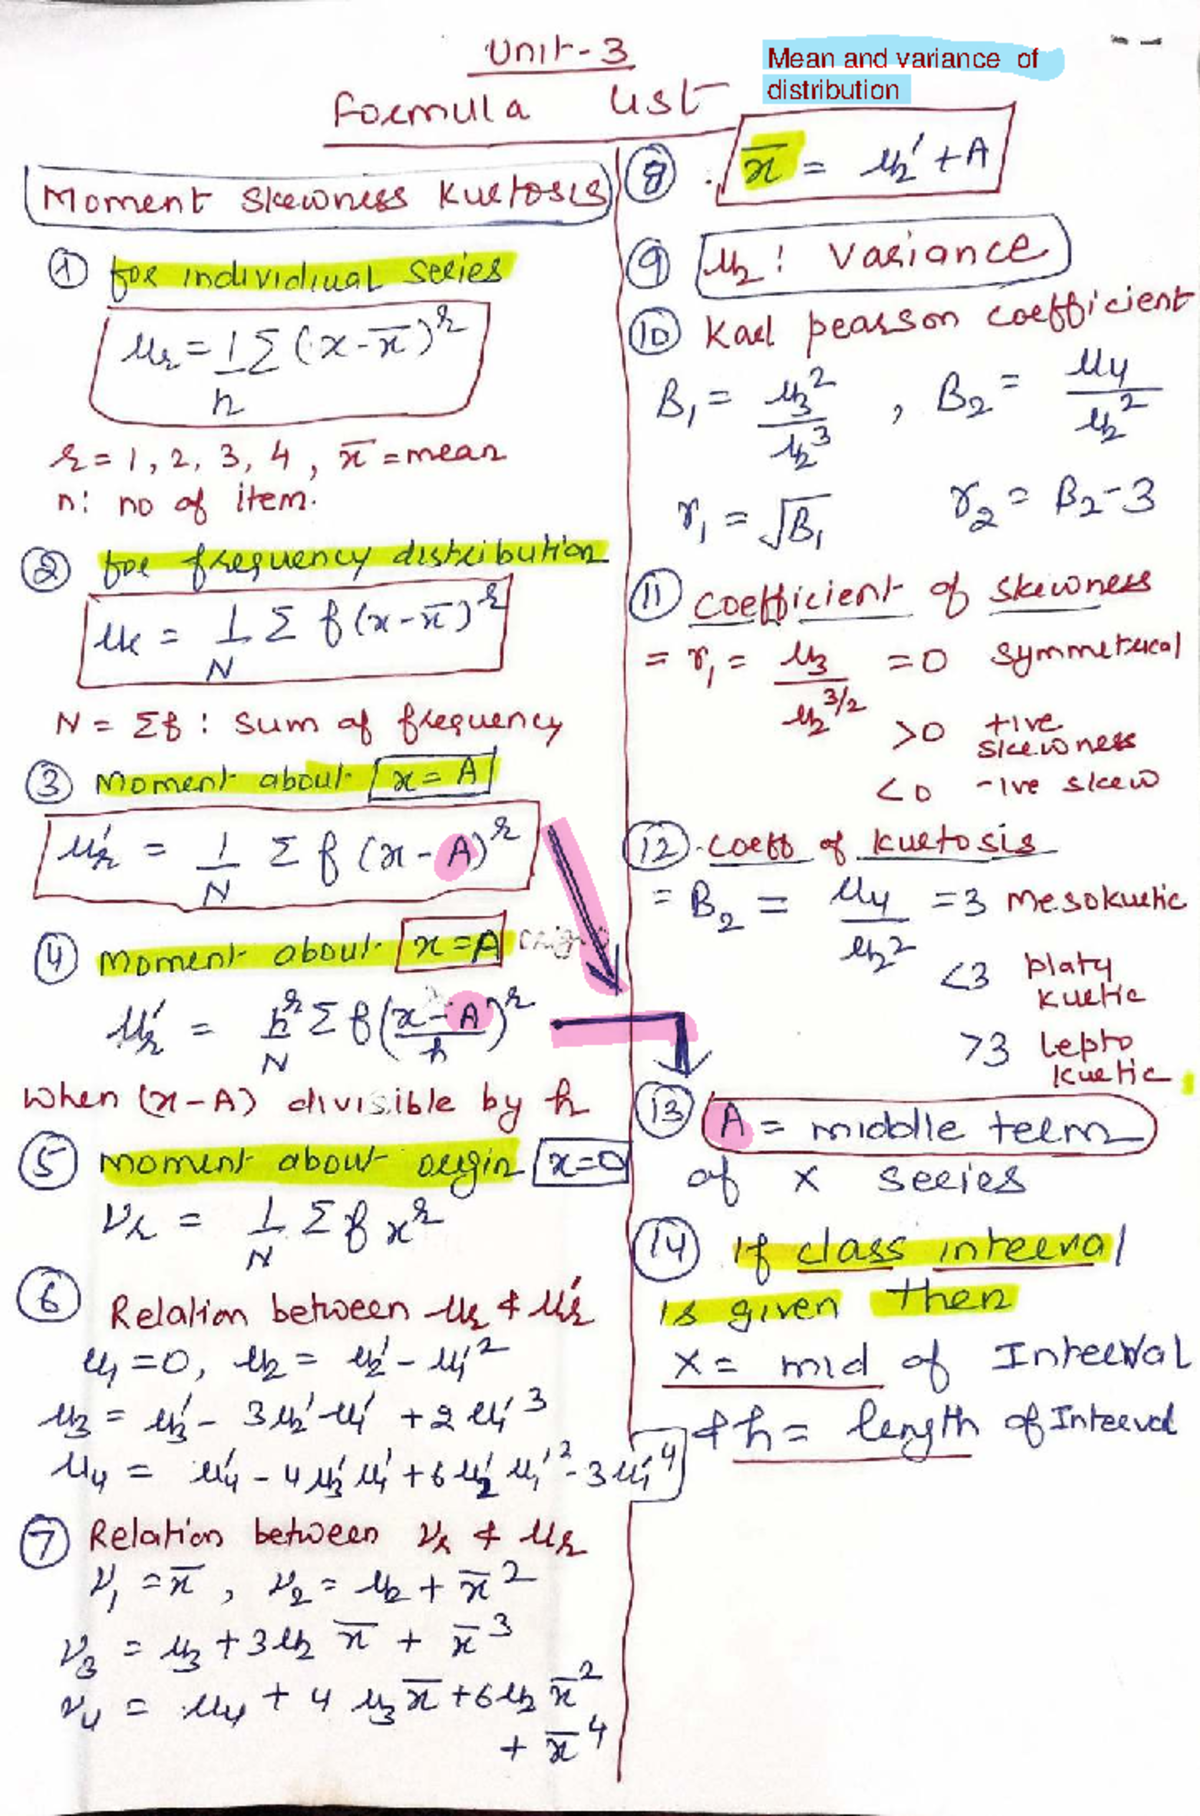 Unit-3
Mean and variance of
distribution
Formula List
Moment Skewness Kurtosis
① for individiual series
μr = 1/n Σ (x - x̄)^r
r = 1, 2, 3, 4, x̄ = mean
n: no of item.
② for frequency distribution
μr = 1/N Σ f (x - x̄)^r
N = Σf : Sum of frequency
③ Moment about x = A
μr' = 1/N Σ f (x - A)^r
④ Moment about x = A
μr' = h^r/N Σ f ((x - A)/h)^r
When (x - A) divisible by h
⑤ Moment about origin x=0
νr = 1/N Σ f x^r
⑥ Relation between μr & μr'
μ1 = 0, μ2 = μ2' - μ1'^2
μ3 = μ3' - 3μ2' μ1' + 2μ1'^3
μ4 = μ4' - 4μ3' μ1' + 6μ2' μ1'^2 - 3μ1'^4
⑦ Relation between νr & μr
ν1 = x̄, ν2 = μ2 + x̄^2
ν3 = μ3 + 3μ2 x̄ + x̄^3
ν4 = μ4 + 4 μ3 x̄ + 6μ2 x̄^2
+ x̄^4
⑧ x̄ = μ2' + A
⑨ μ2 : Variance
⑩ Karl pearson coefficient
B1 = μ3^2/μ2^3, B2 = μ4/μ2^2
γ1 = √B1 γ2 = B2 - 3
⑪ coefficient of skewness
= γ1 = μ3/μ2^3/2 = 0 Symmetrical
>0 +ive
skewness
<0 -ive skew
⑫ coeff of kurtosis
= B2 = μ4/μ2^2 = 3 Mesokurtic
<3 platy
kurtic
>3 Lepto
kurtic
⑬ A = middle term
of x series
⑭ If class interval
is given then
x = mid of Interval
& h = length of Interval